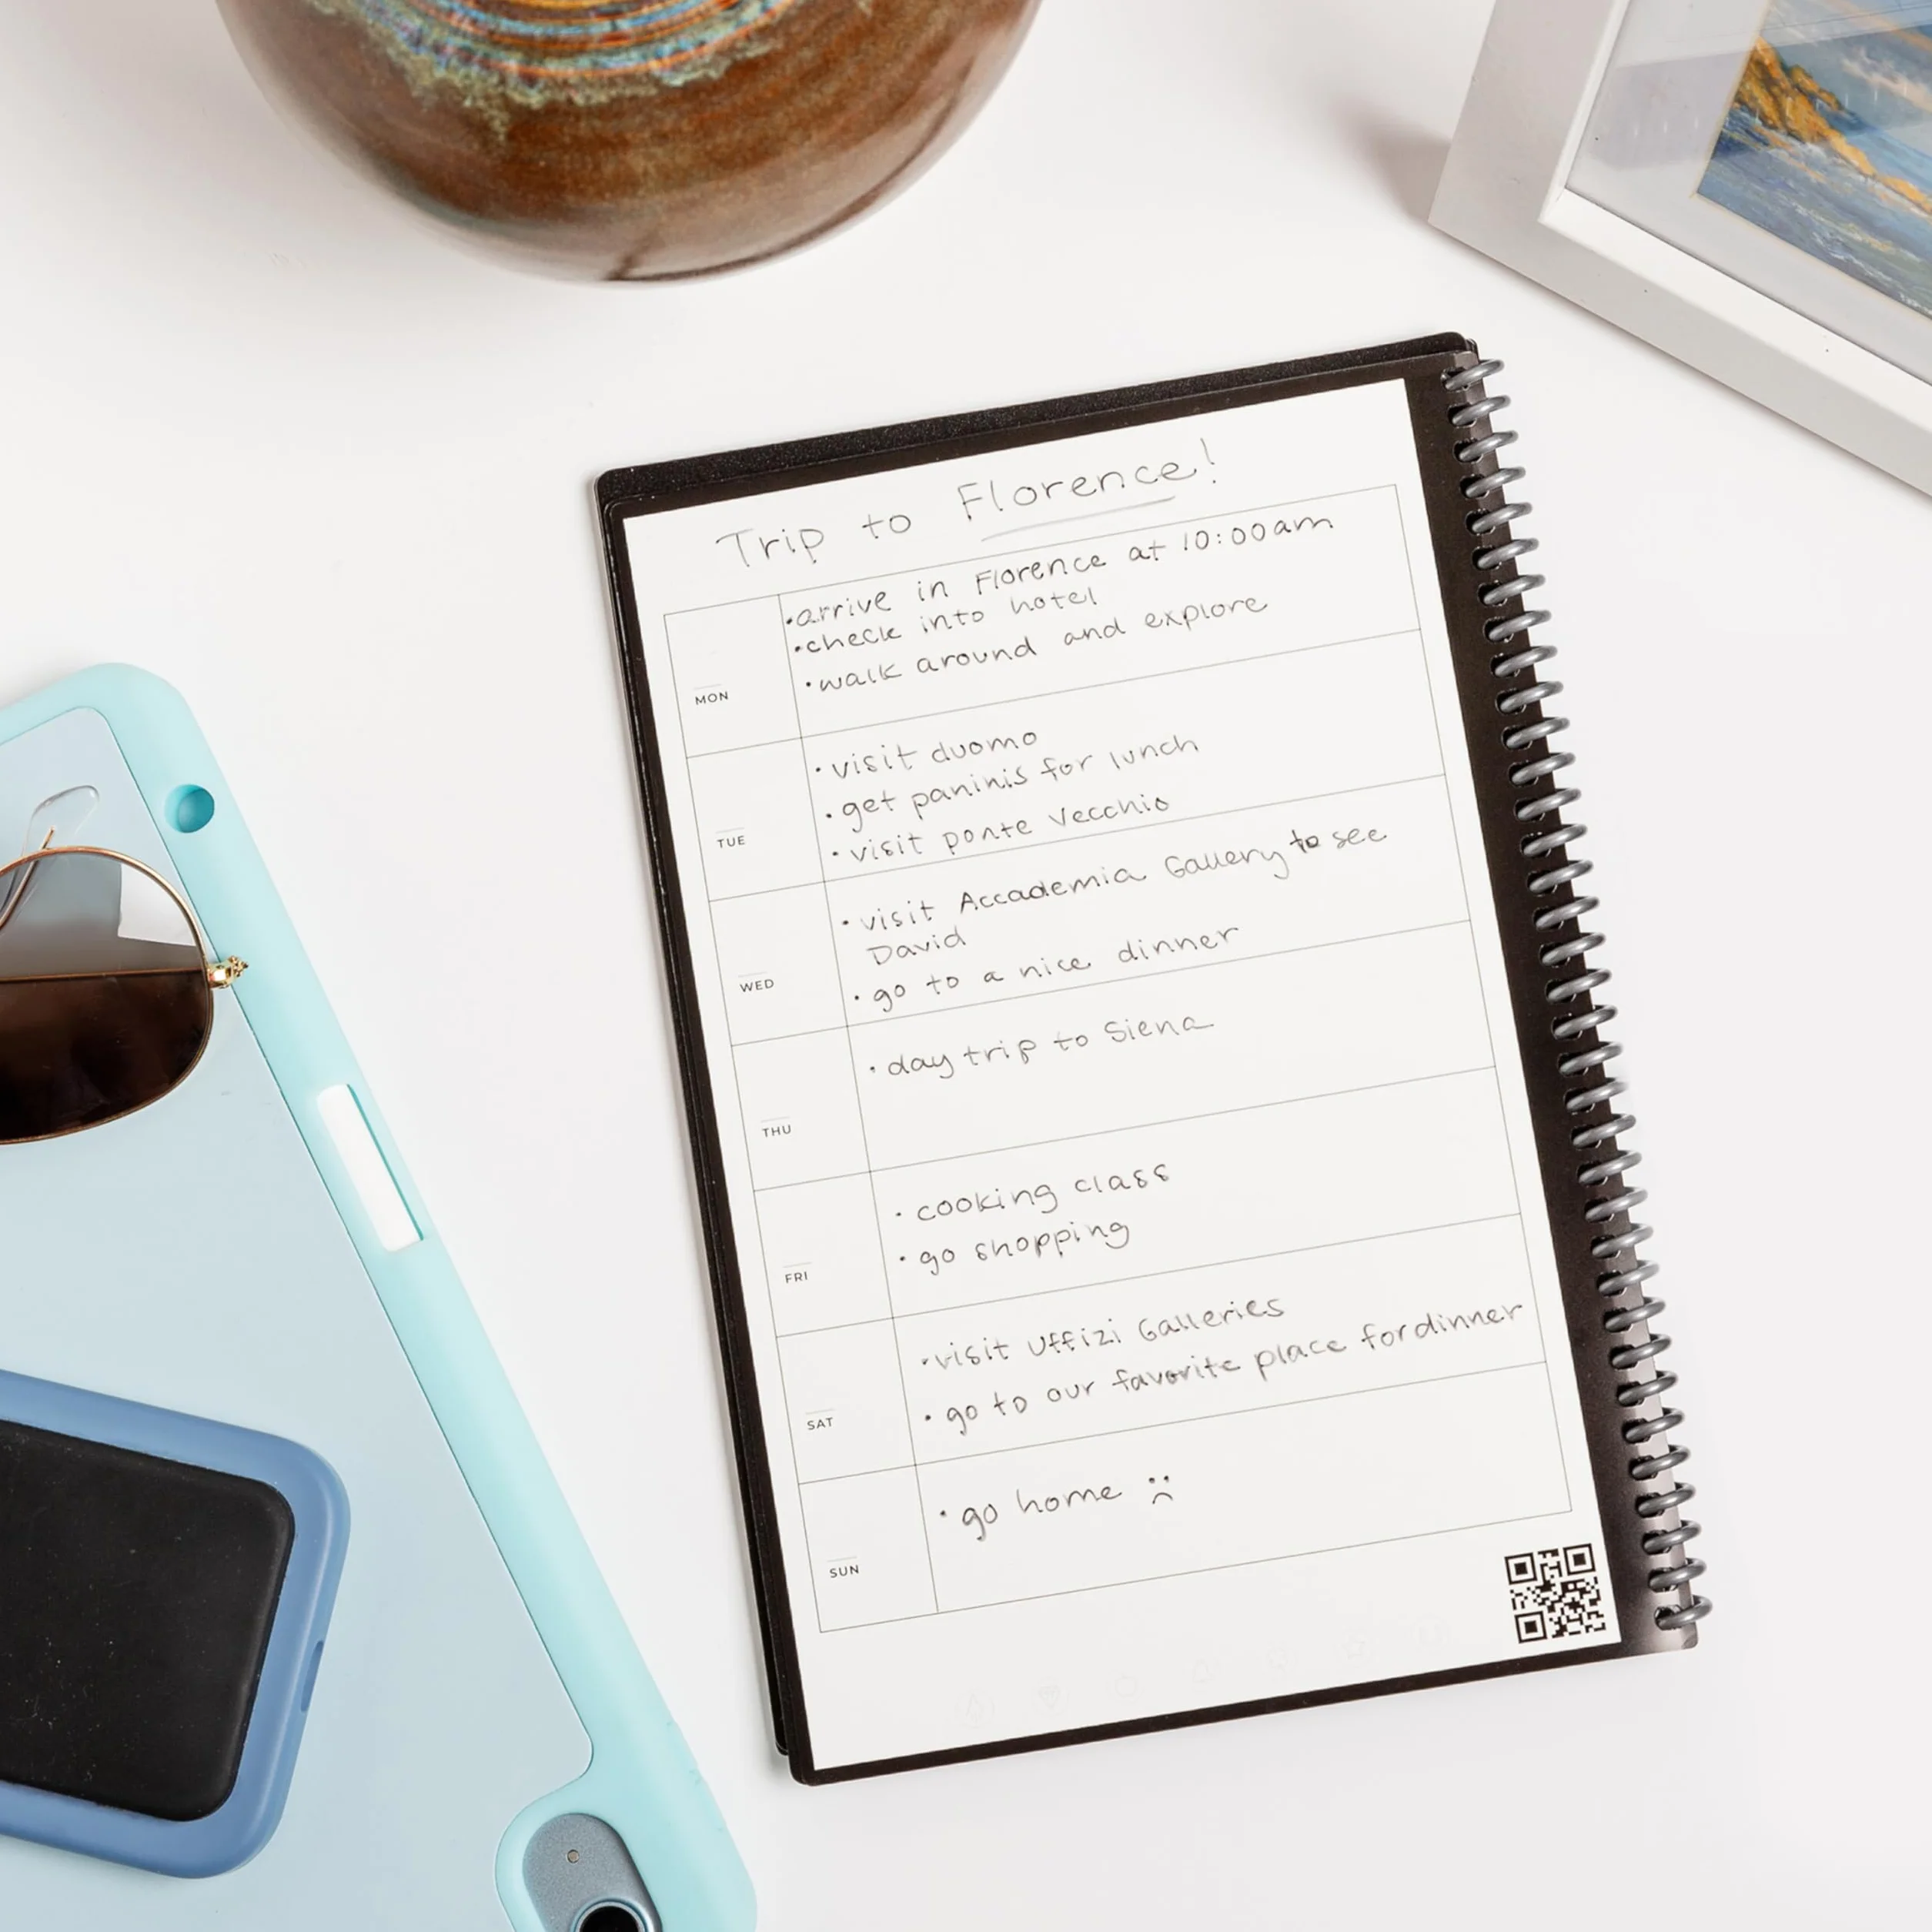 Trip to Florence!
•arrive in Florence at 10:00am
•check into hotel
•walk around and explore
MON
•visit duomo
•get paninis for lunch
•visit ponte Vecchio
TUE
•visit Accademia Gallery to see
David
•go to a nice dinner
WED
•day trip to Siena
THU
•cooking class
•go shopping
FRI
•visit Uffizi Galleries
•go to our favorite place for dinner
SAT
•go home :(
SUN